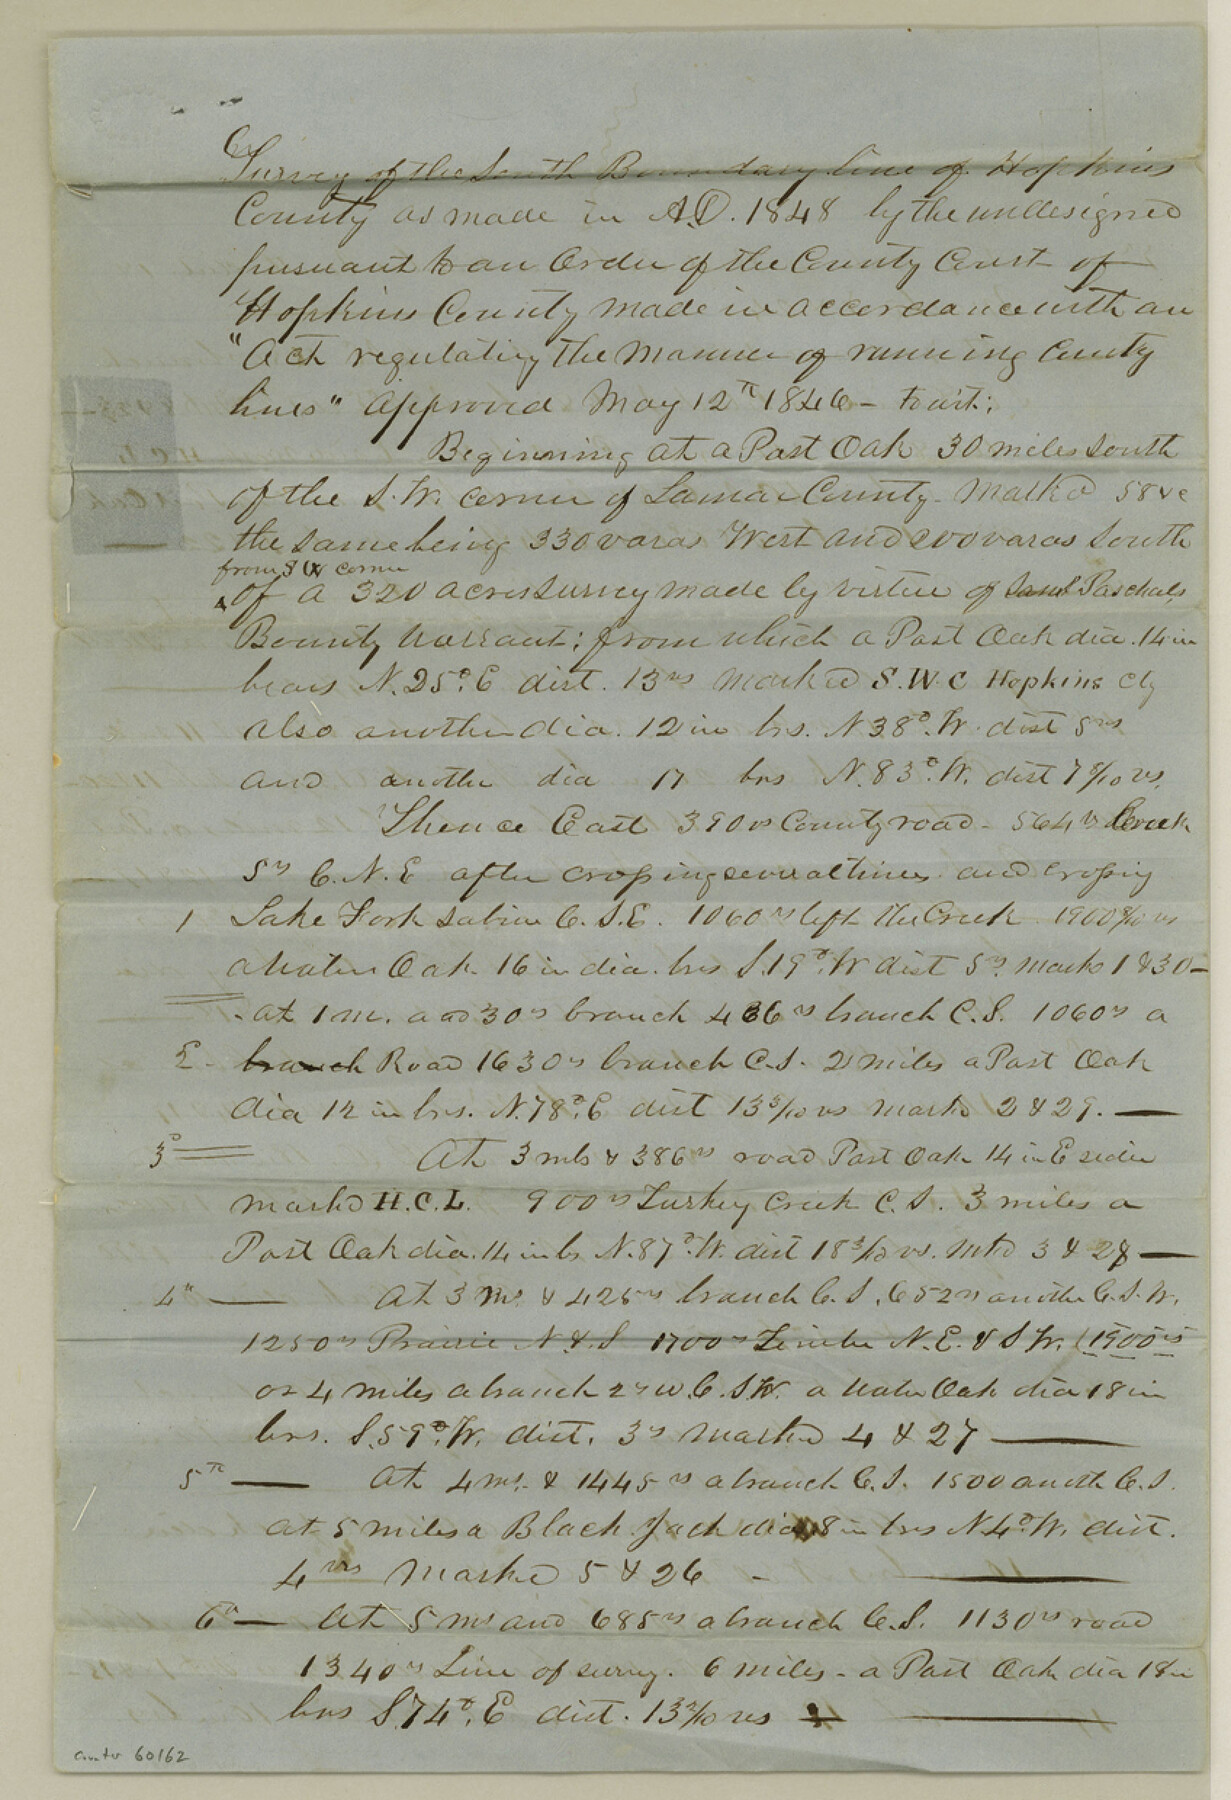 Survey of the South Boundary line of Hopkins
County as made in A.D. 1848 by the undesigned
pursuant to an Order of the County Court of
Hopkins County made in accordance with an
"Act regulating the manner of running County
lines" Approved May 12th 1846 - towit:
Beginning at a Post Oak 30 miles South
of the S. W. corner of Lamar County - Marked 58
the same being 330 varas West and 200 varas South
from S W corner
of a 320 acres survey made by virtue of Saml Paschals
Bounty Warrant; from which a Post Oak dia. 14 in
bears N. 25°. E dist. 13 vrs marked S. W. C Hopkins Cty
also another dia. 12 in brs. N 38°. W. dist 5 vrs
and another dia 17 brs N. 83°. W. dist 7 8/10 vs.
Thence East 390 vs County road - 564 vs Creek
5 vs C. N. E after crossing several times and crossing
1 Lake Fork Sabine C. S. E. 1060 vs left the Creek 1900 8/10 vs
a Water Oak 16 in dia. brs S. 19°. W dist 5 vs. mark 1 & 30 -
at 1 m. and 30 vs branch 436 vs branch C. S. 1060 vs a
2 - branch Road 1630 vs branch C. S. 2 miles a Post Oak
dia 12 in brs. N. 78°. E dist 13 3/10 vs markd 2 & 29. —
3d At 3 mls & 386 vs road Post Oak 14 in E side
markd H. C. L. 900 vs Turkey Creek C. S. 3 miles a
Post Oak dia. 14 in bs N. 87°. W. dist 18 3/10 vs. mkd 3 & 28 —
4" — At 3 ms. & 425 vs branch C. S. 652 vs another C. S. W.
1250 vs Prairie N. & S 1700 vs Timber N. E. & S W. (1900 vs
or 4 miles a branch 2 vs w. C. S. W. a Water Oak dia 18 in
brs. S. 59°. W. dist. 3 vs marked 4 & 27 —
5th — At 4 ms. & 1445 vs a branch C. S. 1500 anoth C. S.
at 5 miles a Black Jack dia 8 in brs N 4°. W. dist.
4 vrs marked 5 & 26 - —
6th — At 5 ms and 685 vs a branch C. S. 1130 vs road
1340 vs Line of survey. 6 miles - a Post Oak dia 18 in
brs S. 74°. E dist. 13 2/10 vs —
counter 60162